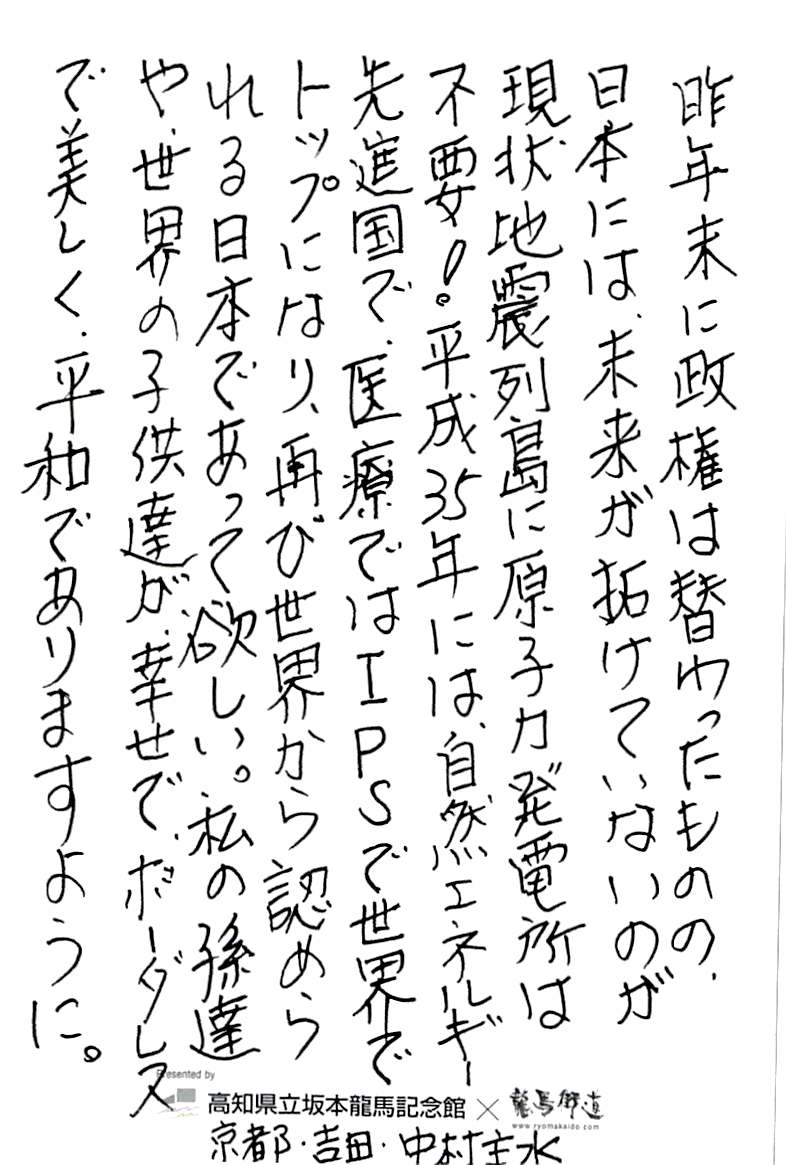 昨年末に政権は替わったものの、
日本には、未来が拓けていないのが
現状地震列島に原子力発電所は
不要!。平成35年には、自然エネルギー
先進国で、医療ではIPSで世界で
トップになり、再び世界から認めら
れる日本であって欲しい。私の孫達
や、世界の子供達が、幸せで、ボーダレス
で美しく、平和でありますように。
Presented by
高知県立坂本龍馬記念館 × 龍馬街道
www.ryomakaido.com
京都・吉田・中村主水